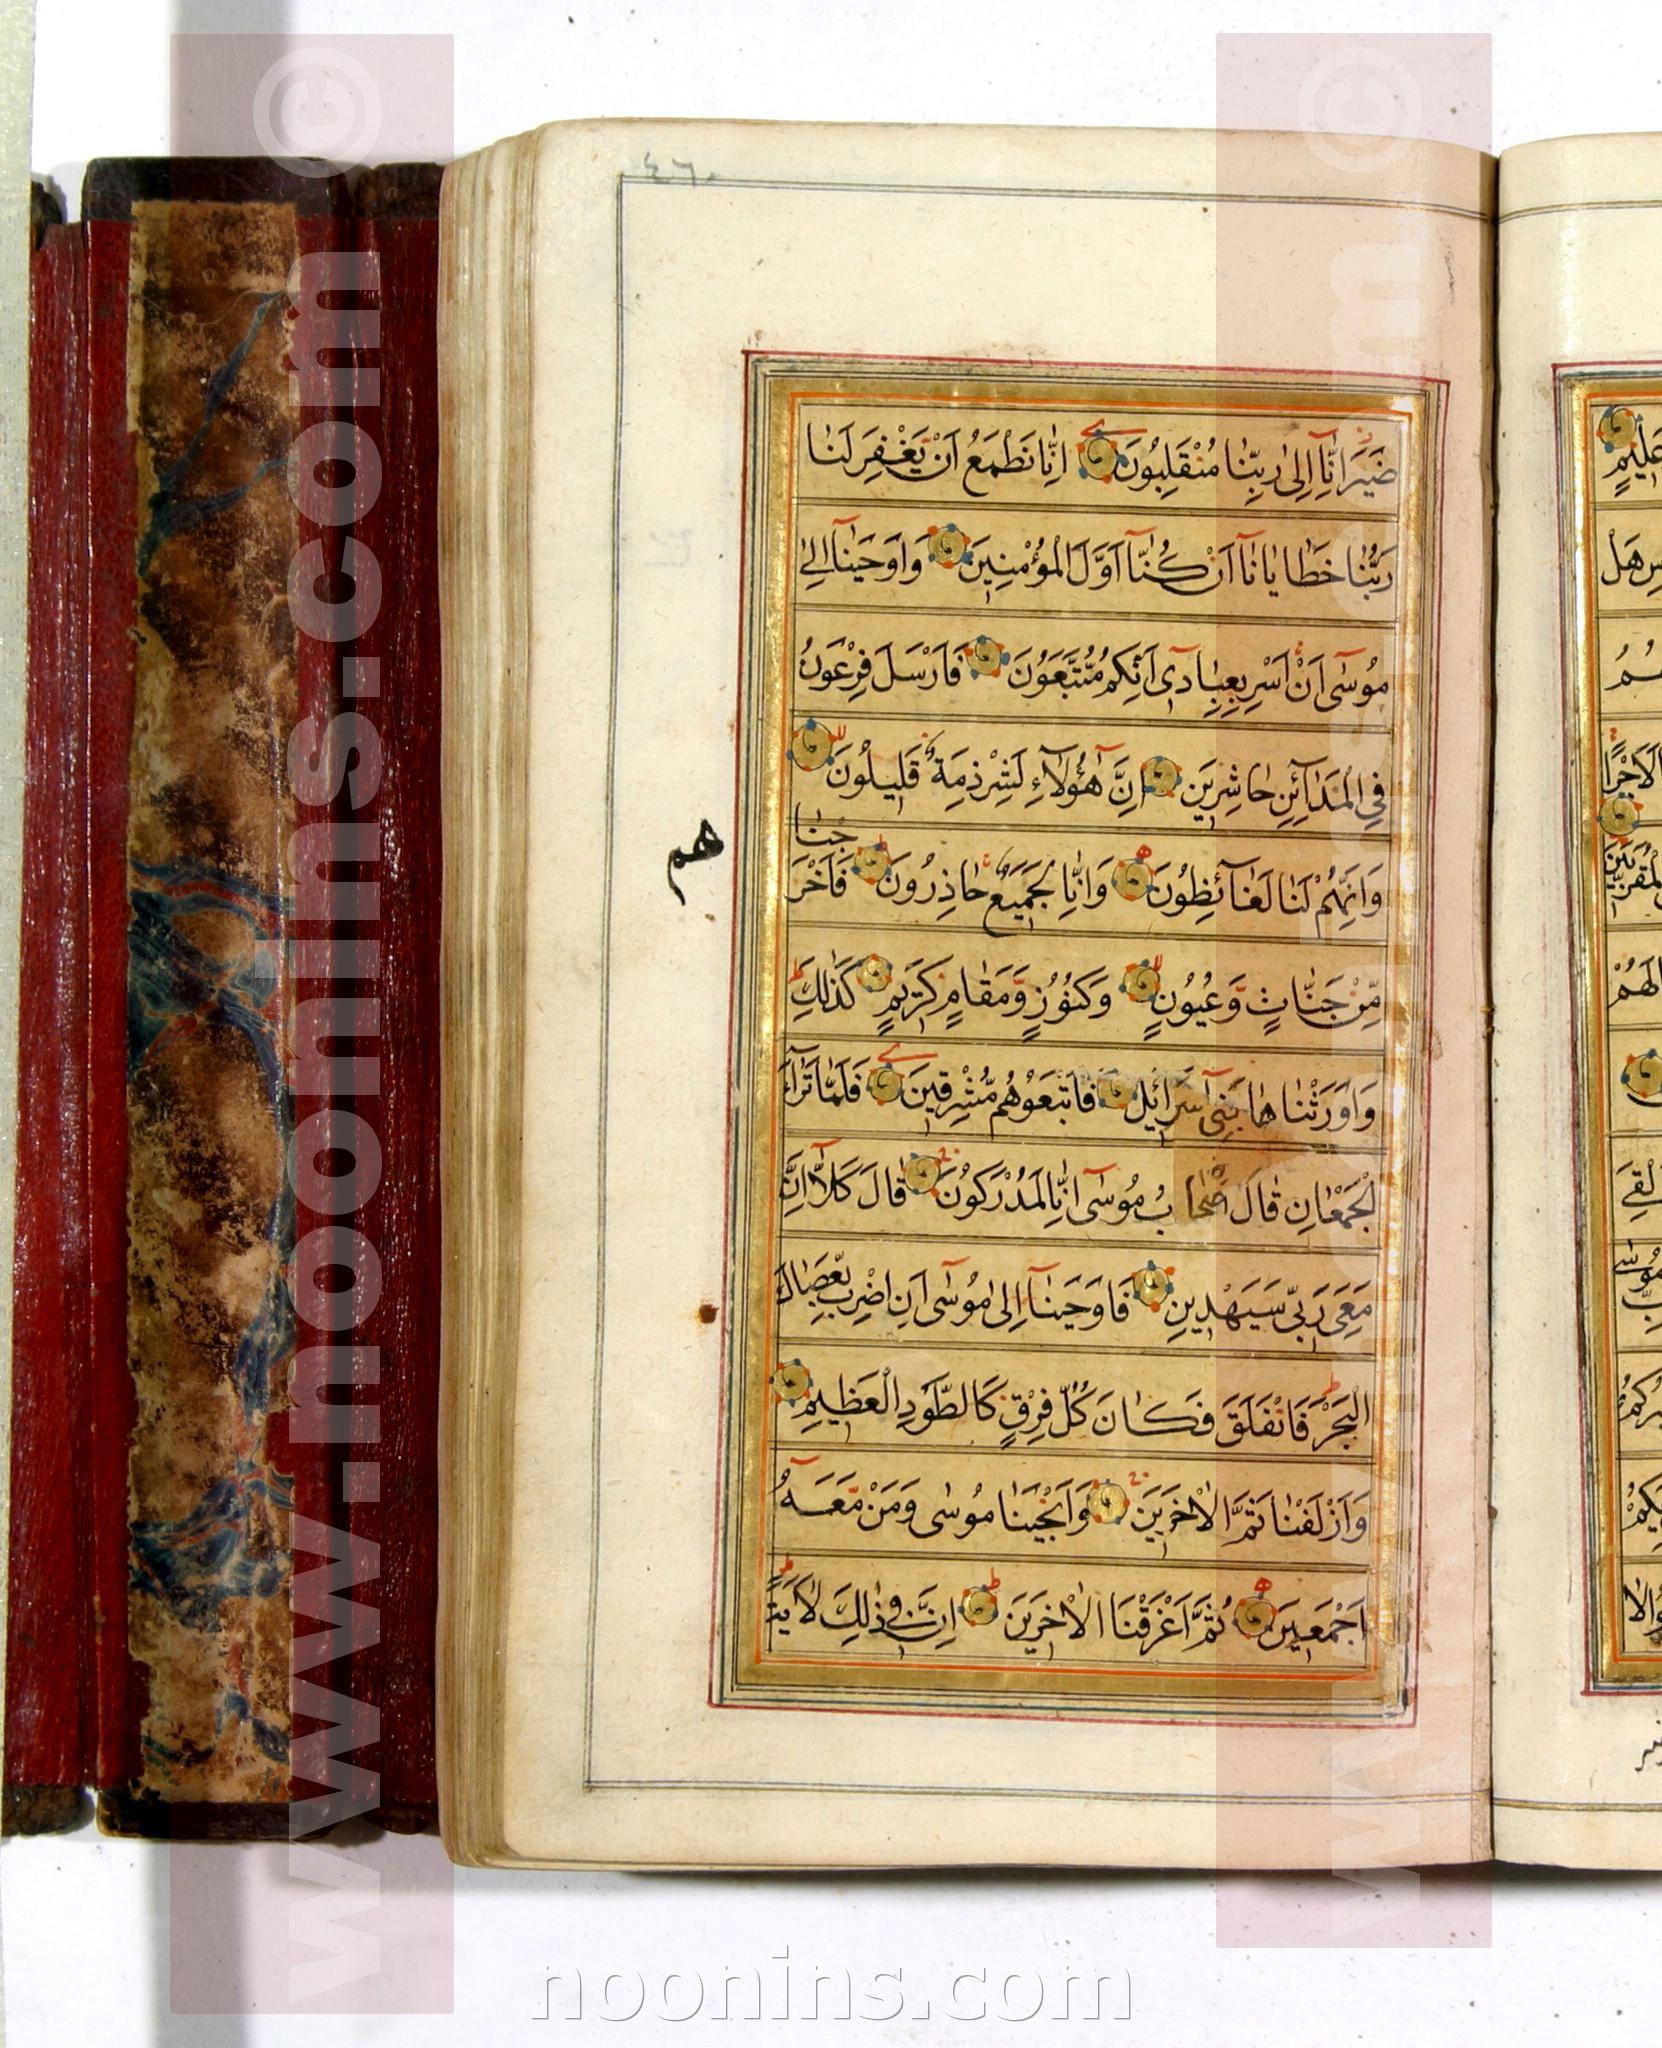 ٤٦٠
ضَيْرَ اِنَّآ اِلىٰ رَبِّنَا مُنْقَلِبُونَ اِنَّا نَطْمَعُ اَنْ يَغْفِرَ لَنَا
رَبُّنَا خَطَايَانَآ اَنْ كُنَّآ اَوَّلَ الْمُؤْمِنِينَ وَاَوحَيْنَآ اِلىٰ
مُوسٰٓى اَنْ اَسْرِ بِعِبَادِىٓ اِنَّكُمْ مُتَّبَعُونَ فَاَرْسَلَ فِرْعَوْنُ
فِي الْمَدَآئِنِ حَاشِرِينَ اِنَّ هٰٓؤُلَآءِ لَشِرْذِمَةٌ قَلِيلُونَ
وَاِنَّهُمْ لَنَا لَغَآئِظُونَ وَاِنَّا لَجَمِيعٌ حَاذِرُونَ فَاَخْرَ
جْنَا
هم
مِنْ جَنَّاتٍ وَعُيُونٍ وَكُنُوزٍ وَمَقَامٍ كَرِيمٍ كَذٰلِكَ
وَاَوْرَثْنَاهَا بَنِىٓ اِسْرَآئِيلَ فَاَتْبَعُوهُمْ مُشْرِقِينَ فَلَمَّا تَرَآءَ
الْجَمْعَانِ قَالَ اَصْحَابُ مُوسٰٓى اِنَّا لَمُدْرَكُونَ قَالَ كَلَّآ اِنَّ
مَعِىَ رَبِّى سَيَهْدِينِ فَاَوحَيْنَآ اِلىٰ مُوسٰٓى اَنِ اضْرِبْ بِعَصَاكَ
الْبَحْرَ فَانْفَلَقَ فَكَانَ كُلُّ فِرْقٍ كَالطَّوْدِ الْعَظِيمِ
وَاَزْلَفْنَا ثَمَّ الْاٰخَرِينَ وَاَنْجَيْنَا مُوسٰى وَمَنْ مَعَهُٓ
اَجْمَعِينَ ثُمَّ اَغْرَقْنَا الْاٰخَرِينَ اِنَّ فِي ذٰلِكَ لَاٰيَةً
عَلِيمٍ
هَلْ
الْمُقَرَّبِينَ
لَهُمْ
مُوسٰى
www.noonins.com ©
www.noonins.com ©
noonins.com